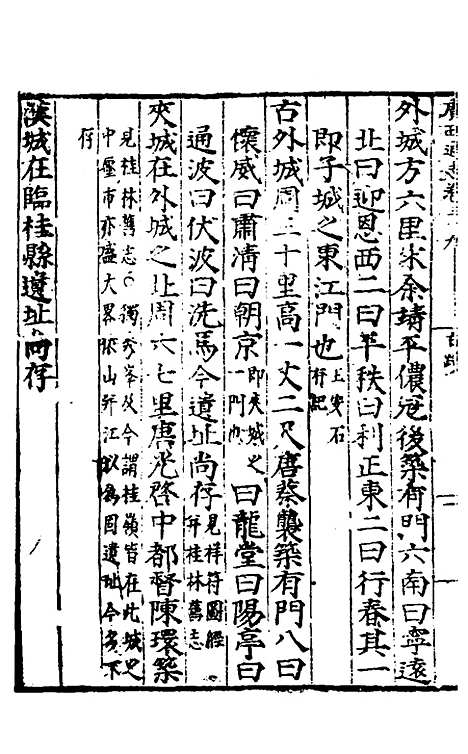 廣西通志卷三十九
古蹟
外城方六里宋余靖平儂寇後築有門六南曰寧遠
北曰迎恩西二曰平秩曰利正東二曰行春其一
即子城之東江門也王安石有記
古外城周三十里高一丈二尺唐蔡襲築有門八曰
懷威曰肅清曰朝京即夾城之一門也曰龍堂曰陽亭曰
通波曰伏波曰洗馬今遺址尚存見祥符圖經并桂林舊志
夾城在外城之北周六七里唐光啓中都督陳環築
見桂林舊志○獨秀峯及今謂桂嶺皆在此城史
中厘市亦盛大畧依山并江以為固遺址今多不
存
漢城在臨桂縣遺址尚存